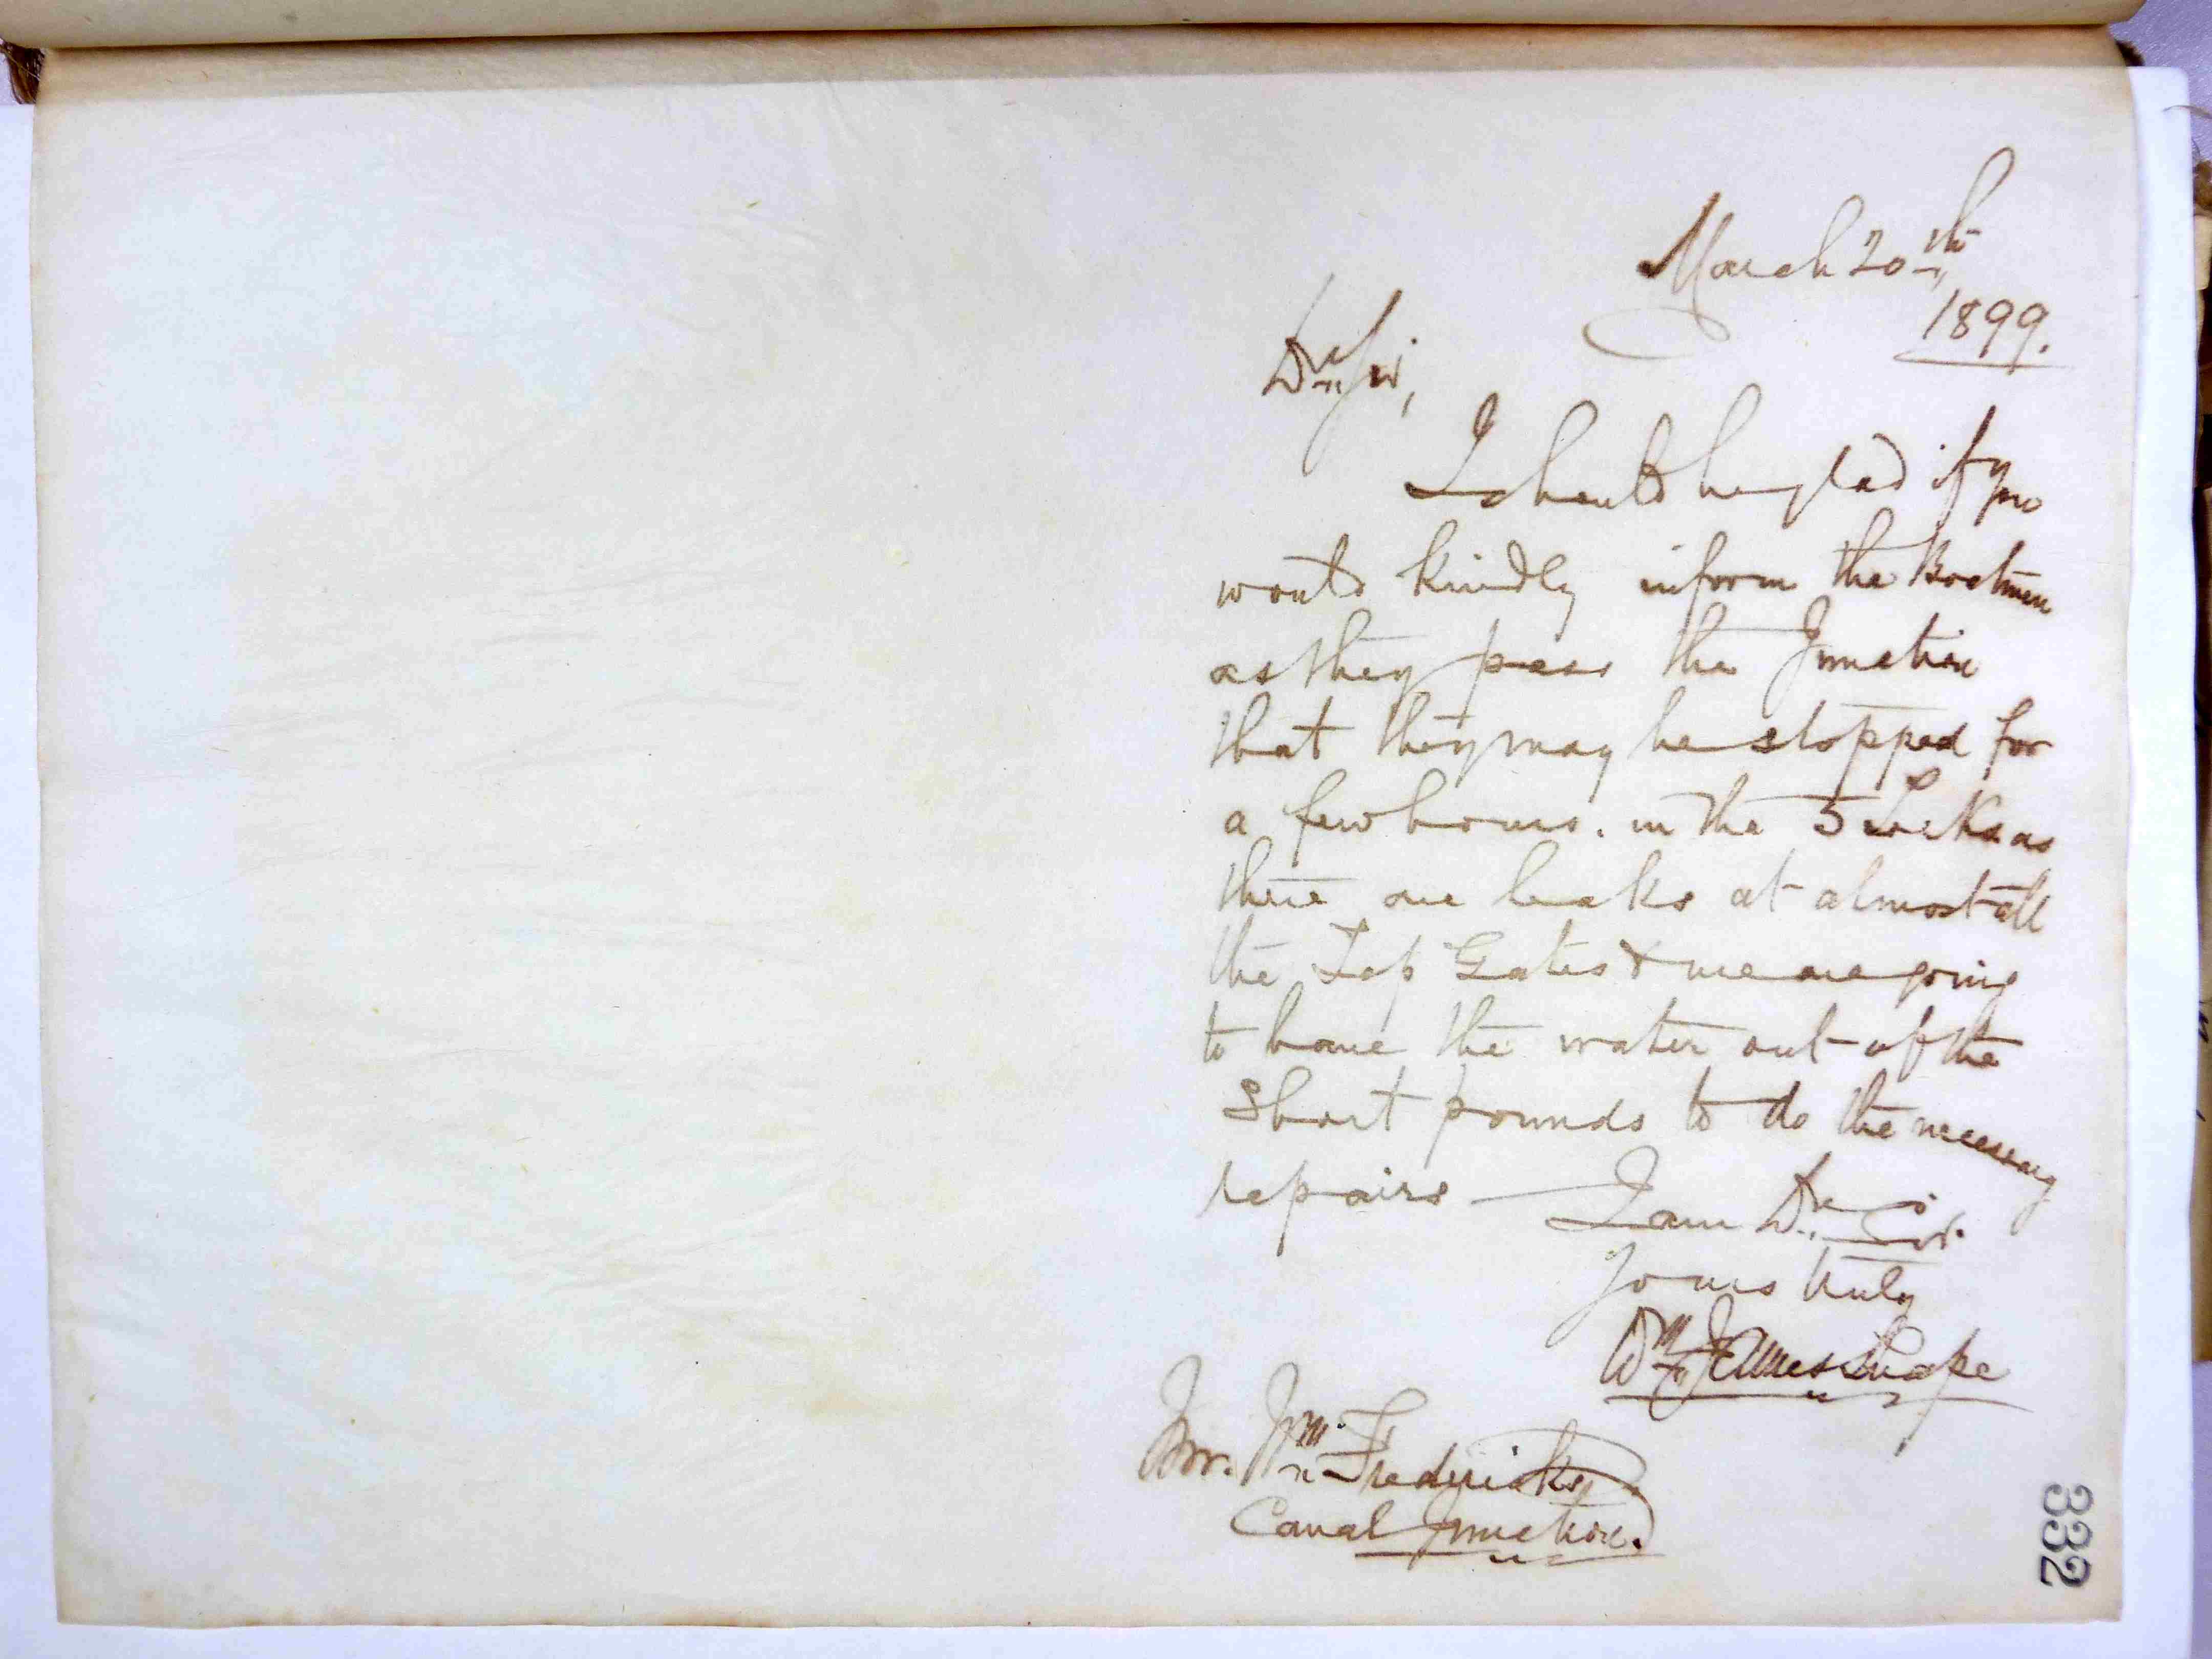 March 20th,
1899.
Dr Sir,
I should be glad if you
would kindly inform the Boatmen
as they pass the Junction
that they may be stopped for
a few hours. in the 5 Locks as
there are leaks at almost all
the Top Gates & we are going
to have the water out of the
Short pounds to do the necessary
repairs — I am Dr Sir.
Yours truly
Wm James Snape
Mr. Wm Fredericks,
Canal Junction.
332